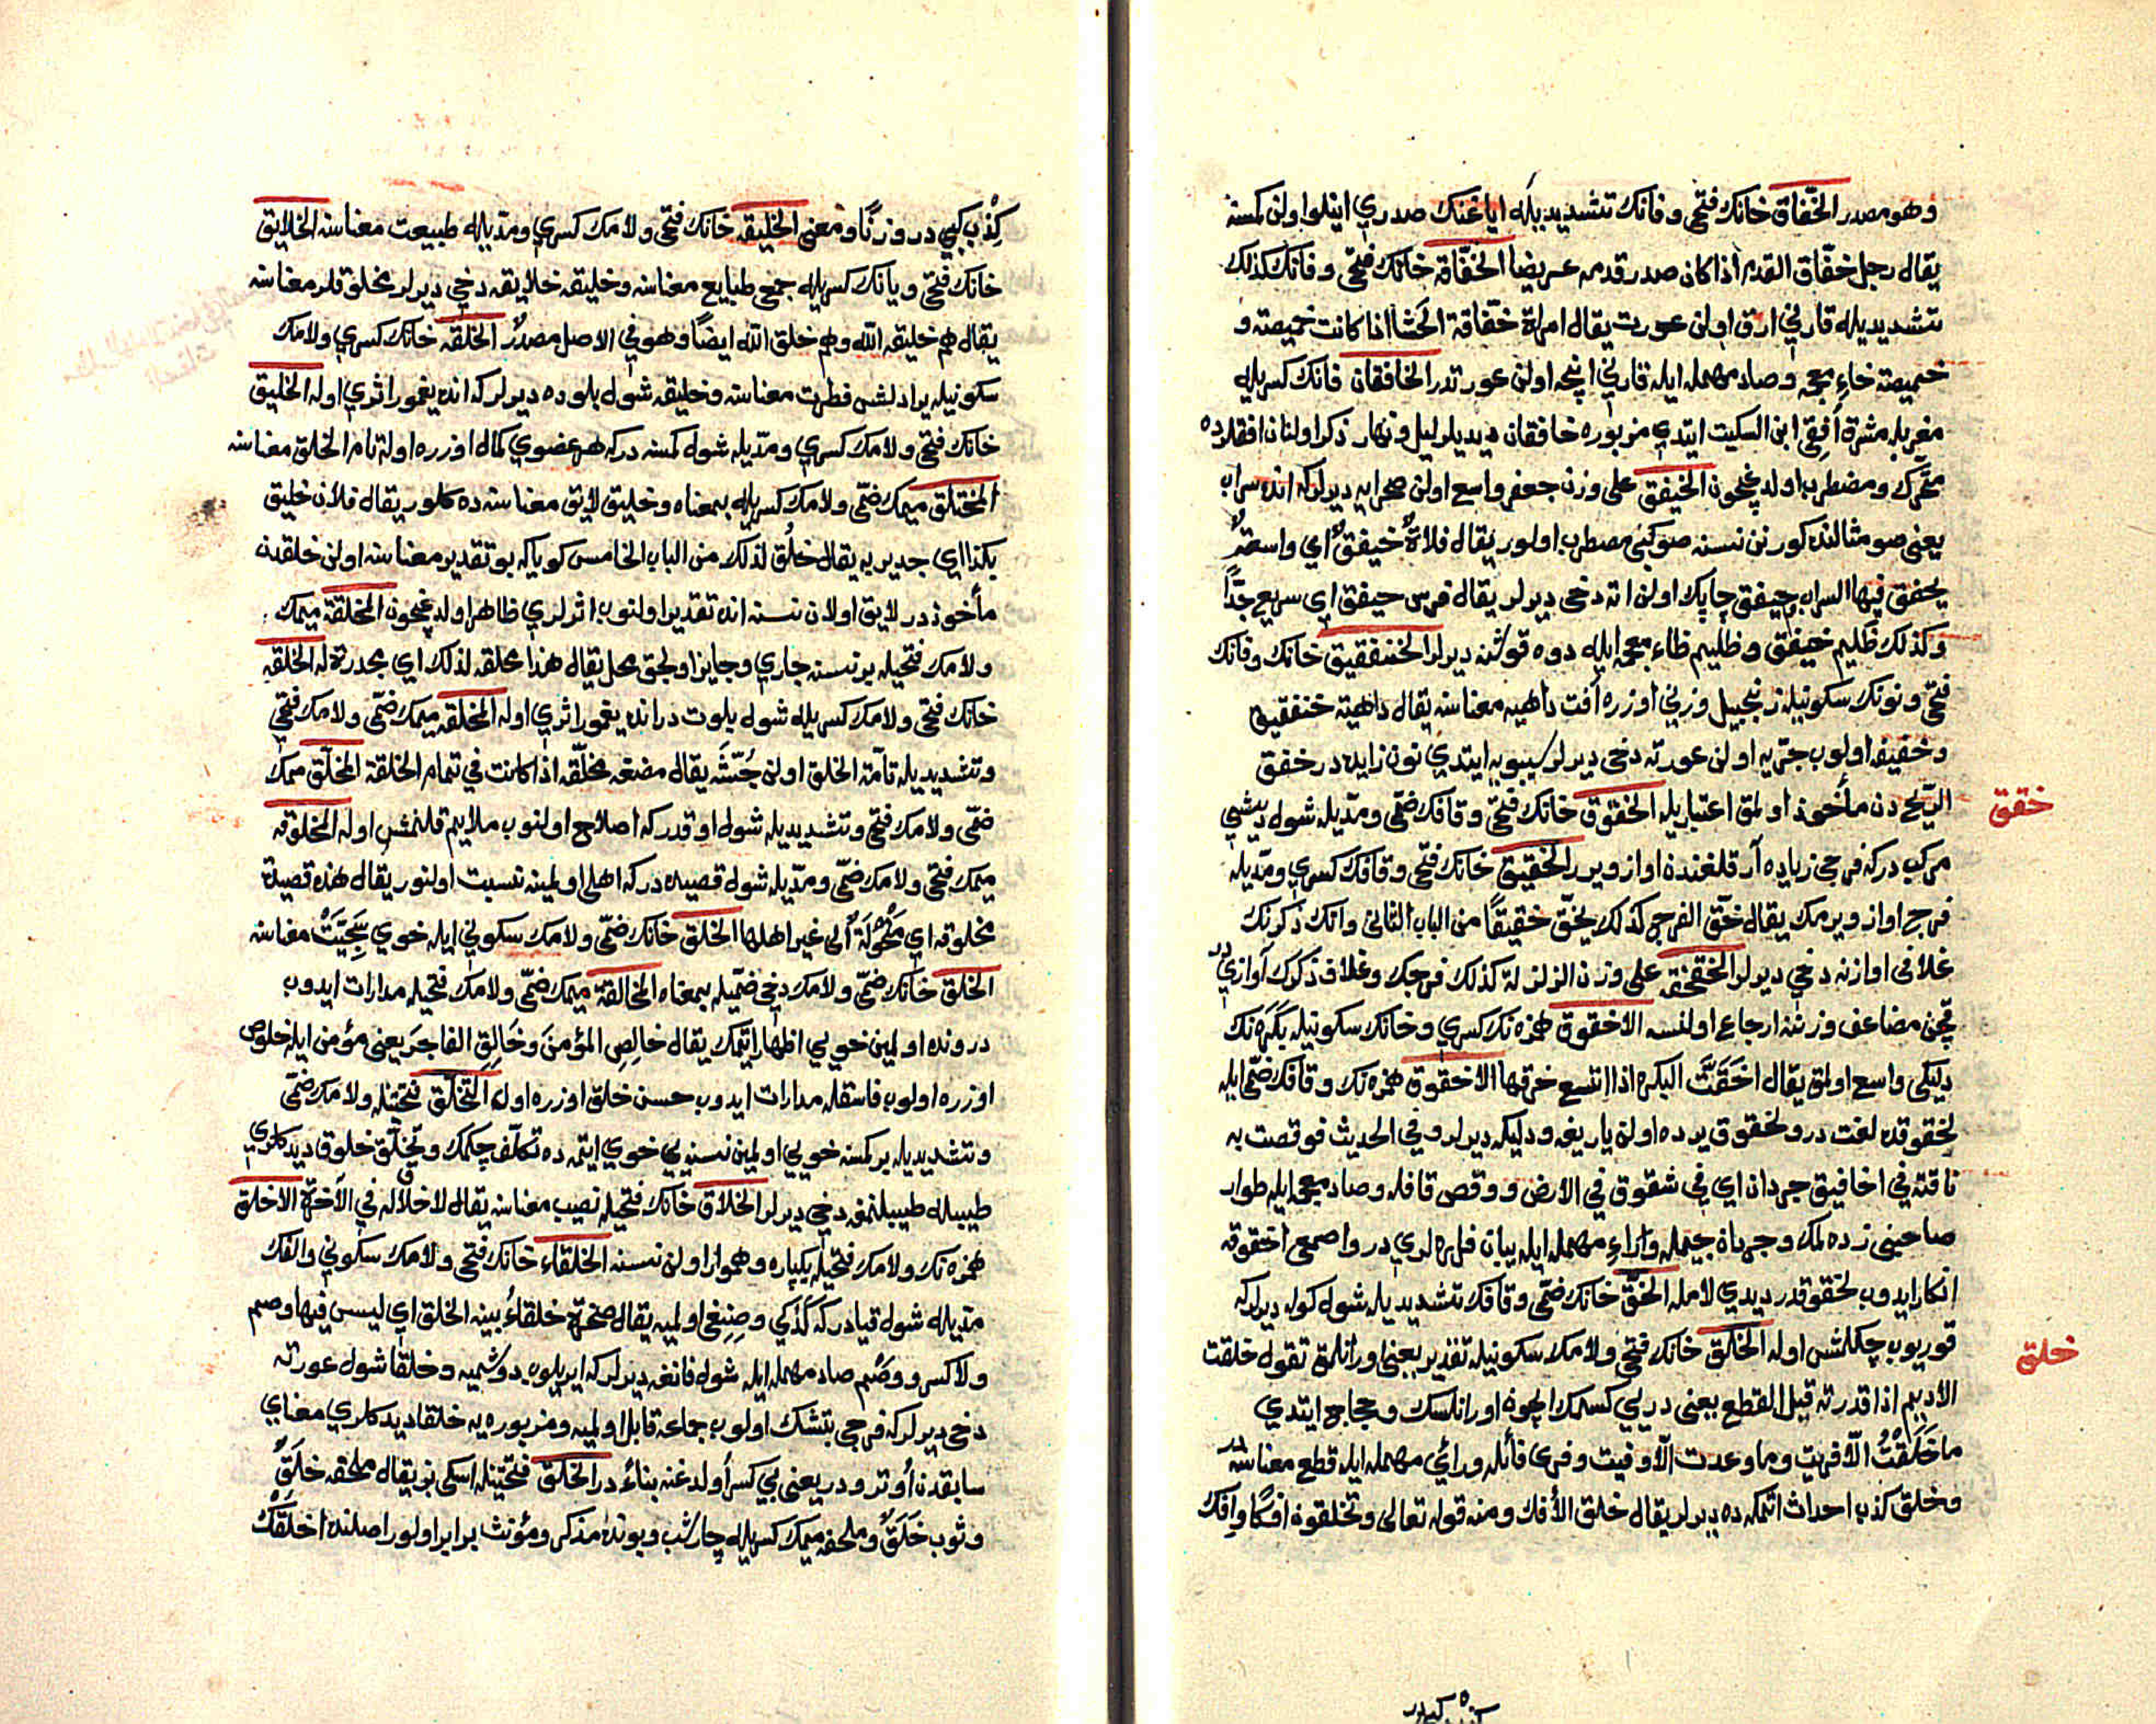 وهو مصدر الخفّاق خانك فتحى وفانك تشديديله اياغنك صدري اينلو اولن كمسنه
يقال رجل خفّاق القدم اذا كان صدر قدمه عريضا الخفّاقة خانك فتحى وفانك كذلك
تشديديله قارني ارق اولن عورت يقال امراة خفّاقة الحشا اذا كانت خميصته و
خميصته خاء معجمه وصاد مهمله ايله قارني انجه اولن عورتدر الخافقان فانك كسريله
مغربله مشرق افقى ابن السكيت ايتدي مزبوره خافقان ديديلر ليل ونهار ذكر اولنان افقلرده
متحرك ومضطرب اولديغيچون الخيفق على وزن جعفر واسع اولن صحرايه ديرلر كه انده سراب
يعنى صو مثالنده كورنن نسنه صو كبى مضطرب اولور يقال فلاة خيفق اي واسعة
يخفق فيها السراب خيفق چاپك اولن اته دخى ديرلر يقال فرس خيفق اي سريع جدّاً
وكذلك ظليم خيفق وظليم ظاء معجمه ايله دوه قوشنه ديرلر الخنفقيق خانك وفانك
فتحى ونونك سكونيله زنجبيل وزني اوزره آفت داهيه معناسنه يقال داهية خنفقيق
وخفيفه اولوب جرّيه اولن عورته دخى ديرلر سيبويه ايتدي نون زايده در خفق
خقق
الريح دن مأخوذ اولمق اعتباريله الخقوق خانك فتحى وقافك ضمّى ومدّيله شول ديشي
مركب دركه فرجي زياده ار قلغندن اواز ويرر الخقيق خانك فتحى وقافك كسري ومدّيله
فرج اواز ويرمك يقال خقّ الفرج كذلك يخقّ خقيقاً من الباب الثانى وانك ذكرنك
غلافى اوازنه دخي ديرلر الخقخقة على وزن الزلزلة كذلك فرجك وغلاف ذكرك آوازيدر
قچن مضاعف وزننه ارجاع اولنسه الاخقوق همزه نك كسري وخانك سكونيله بكره نك
دليكى واسع اولمق يقال اخقّت البكرة اذا اتسع خرقها الاخقوق همزه نك وقافك ضمّى ايله
لخقوقده لغت در ولخقوق يرده اولن ياريغه ودليكه ديرلر وفي الحديث فوقصت به
ناقته في اخاقيق جرذان اي في شقوق في الارض ووقص قافله وصاد معجمه ايله طوار
صاحبنى زده لمك وجرذان جيمله وراء مهمله ايله يبان فلره لري در واصمعى اخقوقه
انكار ايدوب لخقوقدر ديدي لامله الخقّ خانك ضمّى وقافك تشديديله شول كوله ديرلركه
خلق
قوريوب چكلمش اوله الخلق خانك فتحى ولامك سكونيله تقدير يعنى اورانلمق تقول خلقت
الاديم اذا قدرته قبل القطع يعنى دريي كسمك ايچون اورانلسك وحجاج ايتدي
ما خلقتُ الّا فريت وما وعدت الّا وفيت وفرى فائله ورائي مهمله ايله قطع معناسنه در
وخلق كذب احداث اتمكه ده ديرلر يقال خلق الأفك ومنه قوله تعالى وتخلقون افكاً وافك
كذب كبيدر
كِذْب كبي در وزناً ومعنى الخليقه خانك فتحى ولامك كسري ومدّيله طبيعت معناسنه الخلايق
خانك فتحى ويانك كسريله جمعى طبايع معناسنه وخليقه خلايقه دخي ديرلر مخلوقلر معناسنه
يقال هم خليقة الله وهم خلق الله ايضاً وهو في الاصل مصدر الخلقه خانك كسري ولامك
سكونيله يرادلش فطرت معناسنه وخليقه شول بلوده ديرلر كه انده يغمور اثري اوله الخليق
خانك فتحى ولامك كسري ومدّيله شول كمسنه دركه هر عضوي كمال اوزره اوله تام الخلق معناسنه
المختلق ميمك ضمّى ولامك كسريله بمعناه وخليق لايق معناسنه ده كلور يقال فلان خليق
بكذا اي جدير به يقال خلُق لذلك من الباب الخامس كويا كه بو تقدير معناسنه اولن خلقدن
مأخوذدر لايق اولان نسنه انده تقدير اولنوب اثرلري ظاهر اولديغيچون المخلقة ميمك
ولامك فتحيله بر نسنه جاري وجايز اولجق محل يقال هذا مخلقة لذلك اي مجدرة له الخلقه
خانك فتحى ولامك كسريله شول بلوت درانده يغمور اثري اوله المخلقه ميمك ضمّى ولامك فتحي
وتشديديله تامّة الخلق اولن جُثّته يقال مضغه مخلّقه اذا كانت في تمام الخلقة المخلّق ميمك
ضمّى ولامك فتحى وتشديديله شول اوقدر كه اصلاح اولنوب ملايم قلنمش اوله المخلوقه
ميمك فتحى ولامك ضمّى ومدّيله شول قصيده دركه اهلى اولمينه نسبت اولنور يقال هذه قصيدة
مخلوقه اي منحولة الى غير اهلها الخلق خانك ضمّى ولامك سكوني ايله خوي سجيّت معناسنه
الخلق خانك ضمّى ولامك دخي ضمّيله بمعناه المخالقة ميمك ضمّى ولامك فتحيله مدارات ايدوب
دروننده اولمين خويي اظهار اتمك يقال خالِصِ المؤمن وخالِقِ الفاجر يعنى مؤمن ايله خلوص
اوزره اولوب فاسقله مدارات ايدوب حسن خلق اوزره اول التخلّق فتحتيله ولامك ضمّى
وتشديديله بر كمسنه خويي اولمين نسنه يي خوي ايتمه ده تكلّف چكمك وتخلّق خلوق ديدكلري
طيبله طيبلنمغه دخي ديرلر الخلاق خانك فتحيله نصيب معناسنه يقال لا خلاق له في الآخرة الاخلق
همزه نك ولامك فتحيله يكپاره وهموار اولن نسنه الخلقاء خانك فتحى ولامك سكوني والفك
مدّيله شول قيادركه كدكي وصنغى اولميه يقال صخرة خلقاء بينه الخلق اي ليس فيها وصم
ولا كسر ووَصْم صاد مهمله ايله شول فانغه ديرلر كه ايريلوب دوشميه وخلقا شول عورته
دخي ديرلر كه فرجي بتشك اولوب جماعه قابل اولميه ومزبوره يه خلقا ديدكلري معناي
سابقدن أوترودر يعنى بي كسر اولديغنه بناءً در الخلق فتحتيله اسكى بز يقال ملحفه خلَقٌ
وثوب خلَقٌ وملحفه ميمك كسريله چارشب وبونده مذكر ومؤنث برابر اولور اصلنده اخلقك